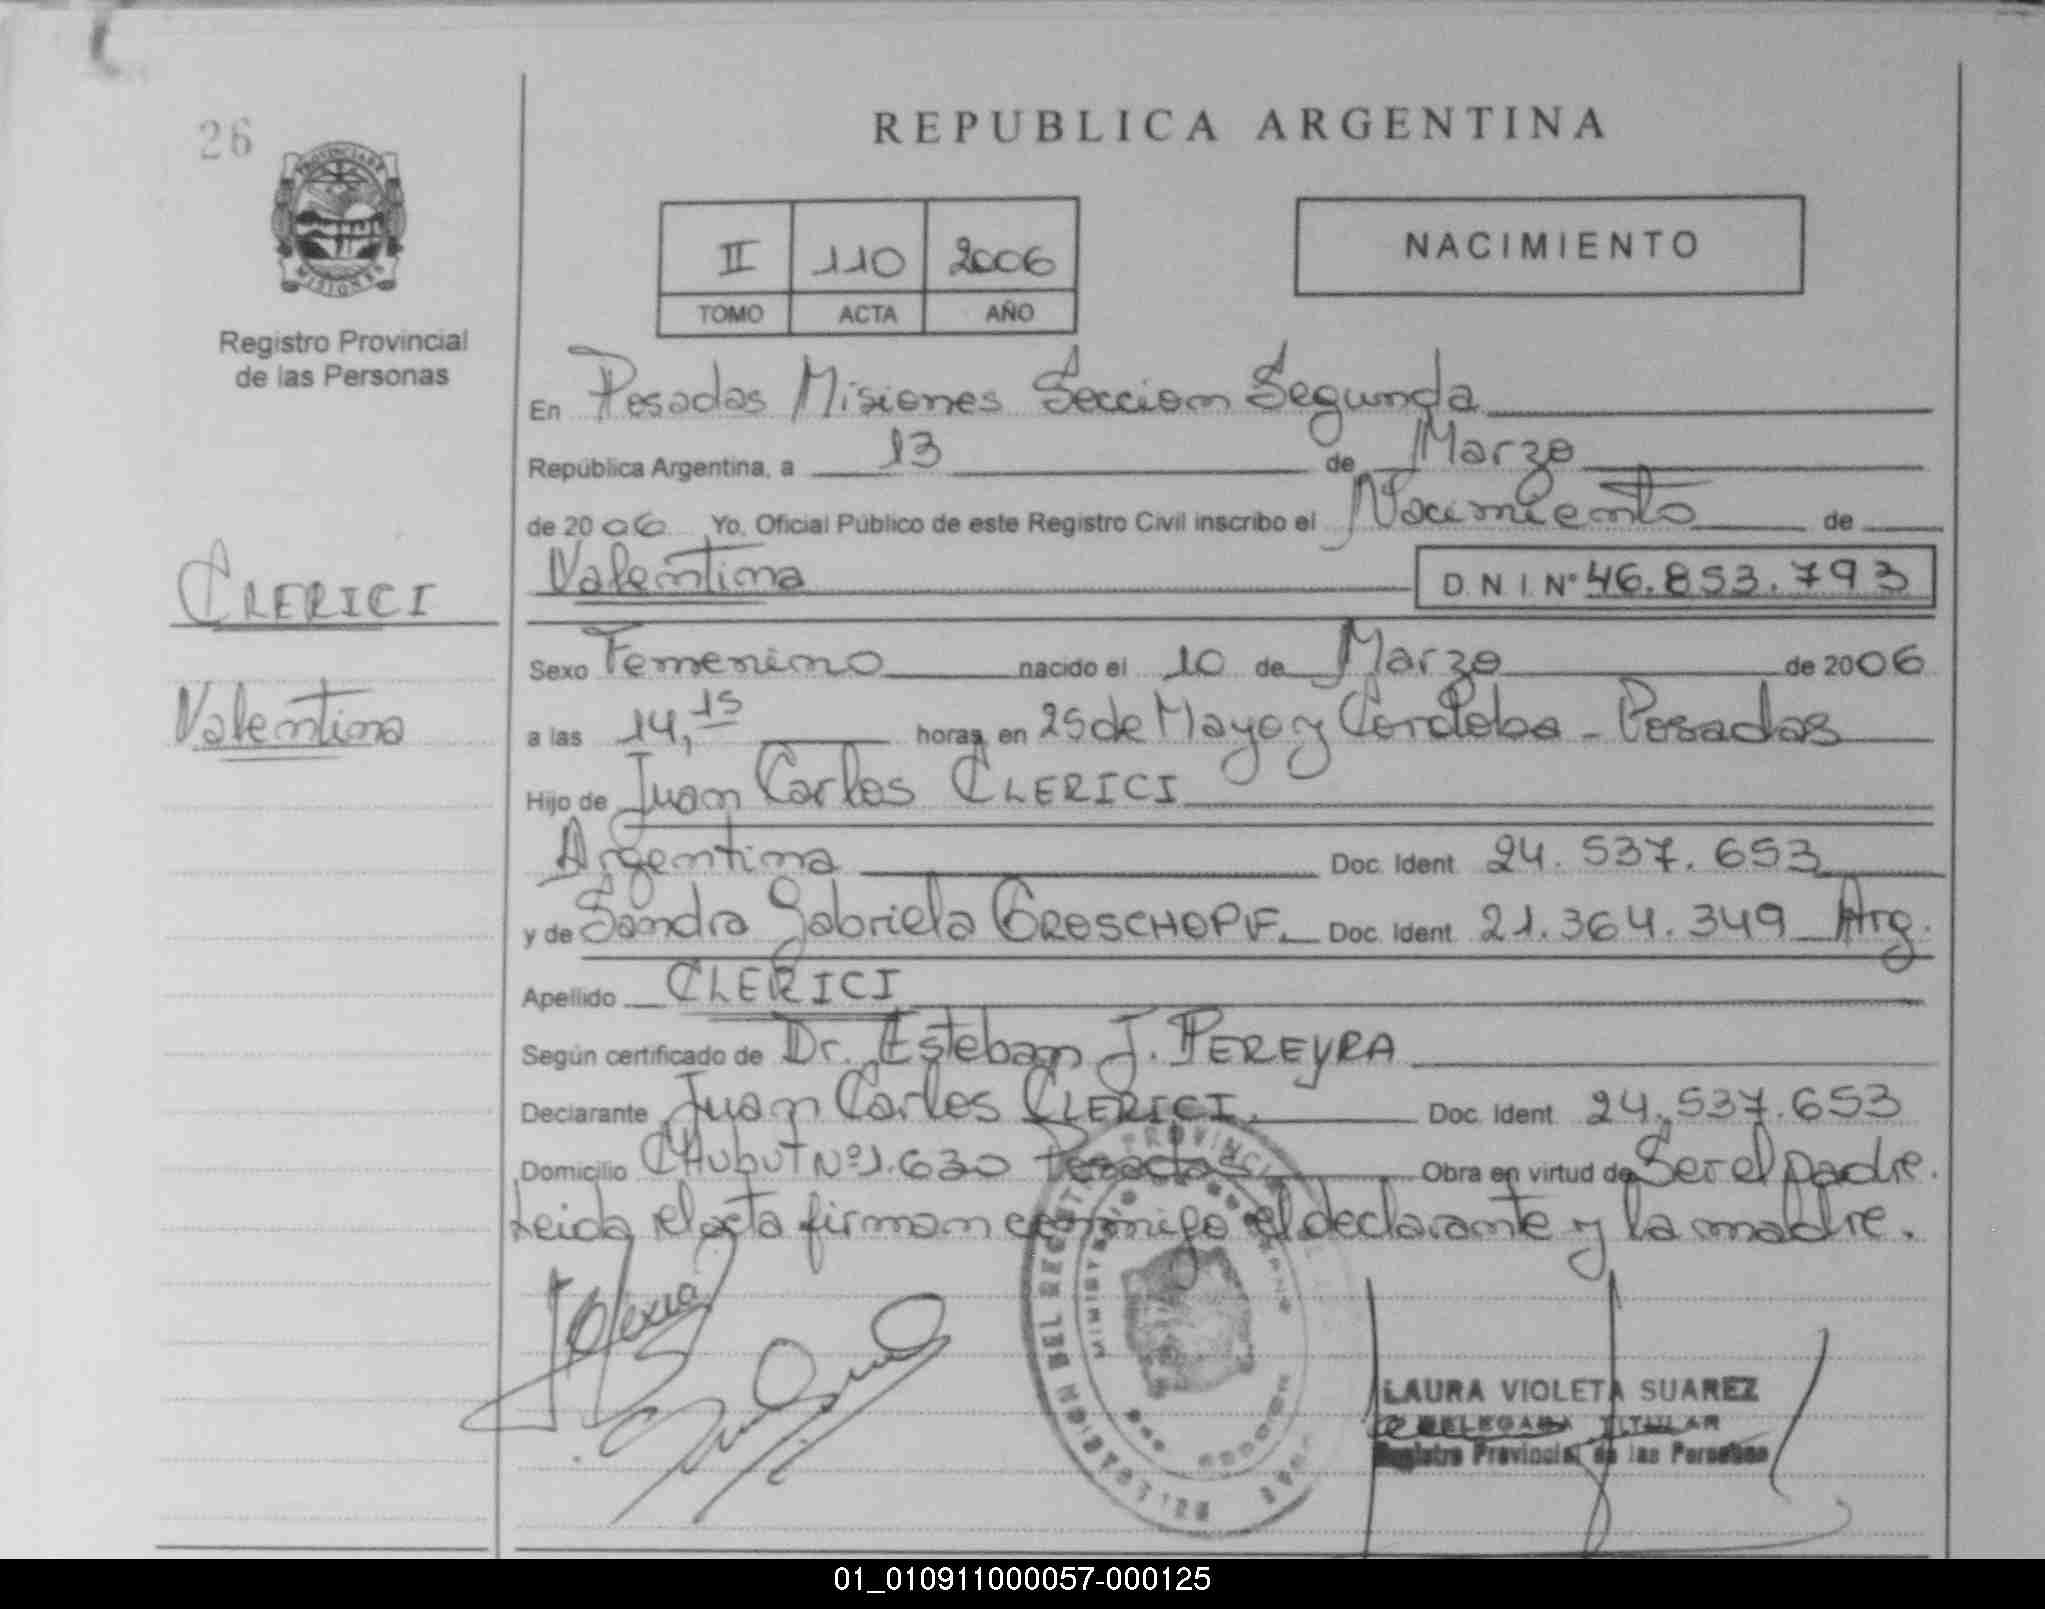 26
REPUBLICA ARGENTINA
PROVINCIA DE
MISIONES
Registro Provincial
de las Personas
II 110 2006
TOMO ACTA AÑO
NACIMIENTO
En Posadas Misiones Seccion Segunda
República Argentina, a 13 de Marzo
de 2006 Yo, Oficial Público de este Registro Civil inscribo el Nacimiento de
Valentina D.N.I. Nº 46.853.793
CLERICI
Valentina
Sexo Femenino nacido el 10 de Marzo de 2006
a las 14,15 horas en 25 de Mayo y Cordoba - Posadas
Hijo de Juan Carlos CLERICI
Argentina Doc. Ident. 24.537.653
y de Sandra Gabriela GROSCHOPF. Doc. Ident. 21.364.349 Arg.
Apellido CLERICI
Según certificado de Dr. Esteban J. PEREYRA
Declarante Juan Carlos CLERICI. Doc. Ident. 24.537.653
Domicilio CHubuT Nº 1.630 Posadas Obra en virtud de Ser el padre.
Leida el acta firman conmigo el declarante y la madre.
LAURA VIOLETA SUAREZ
DELEGADA TITULAR
Registro Provincial de las Personas
01_010911000057-000125